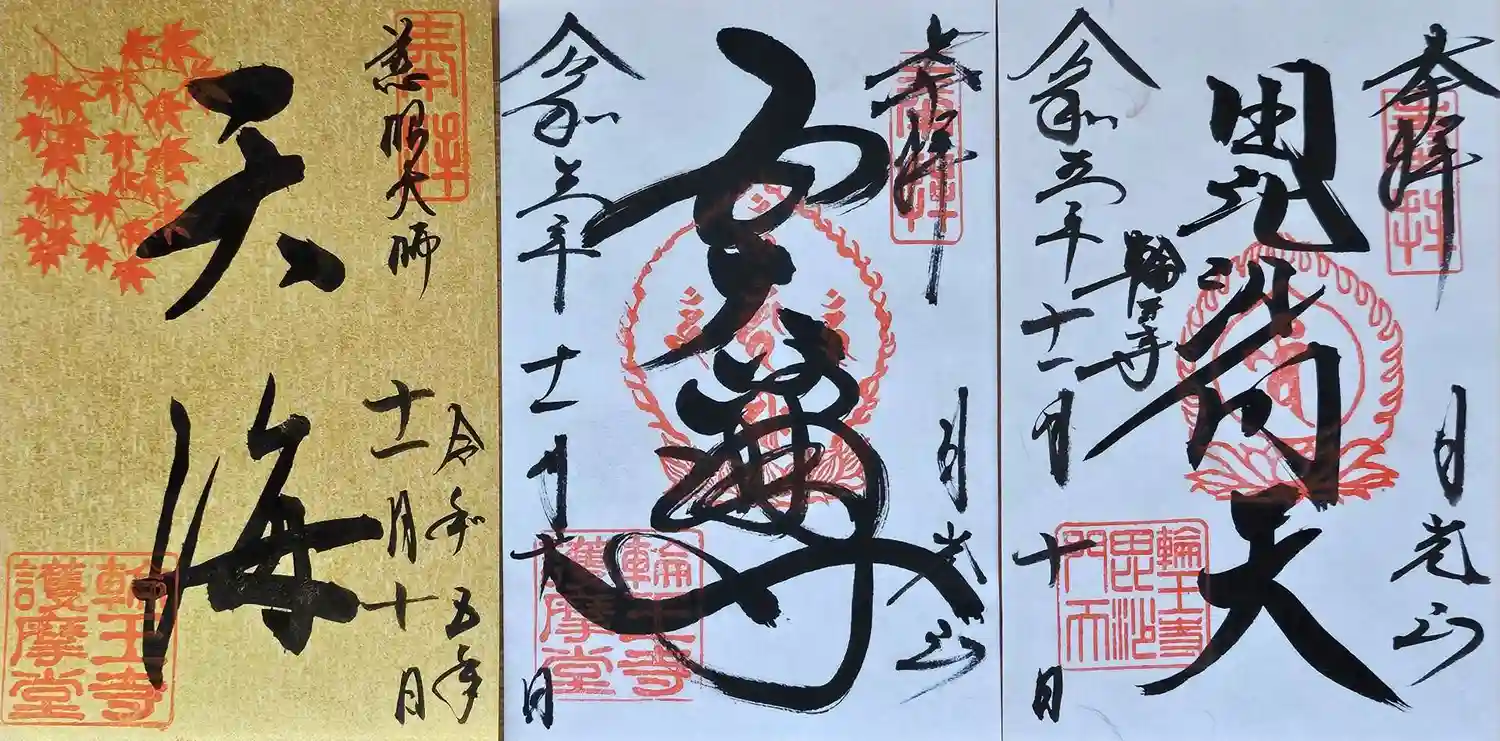 奉拝
慈眼大師
天海
令和五年
十一月十日
輪王寺
護摩堂
奉拝
奉拝
日光山
五大尊
令和五年
十一月十日
輪王寺
護摩堂
奉拝
奉拝
日光山
毘沙門天
輪王寺
令和五年
十一月十日
輪王寺
毘沙
門天